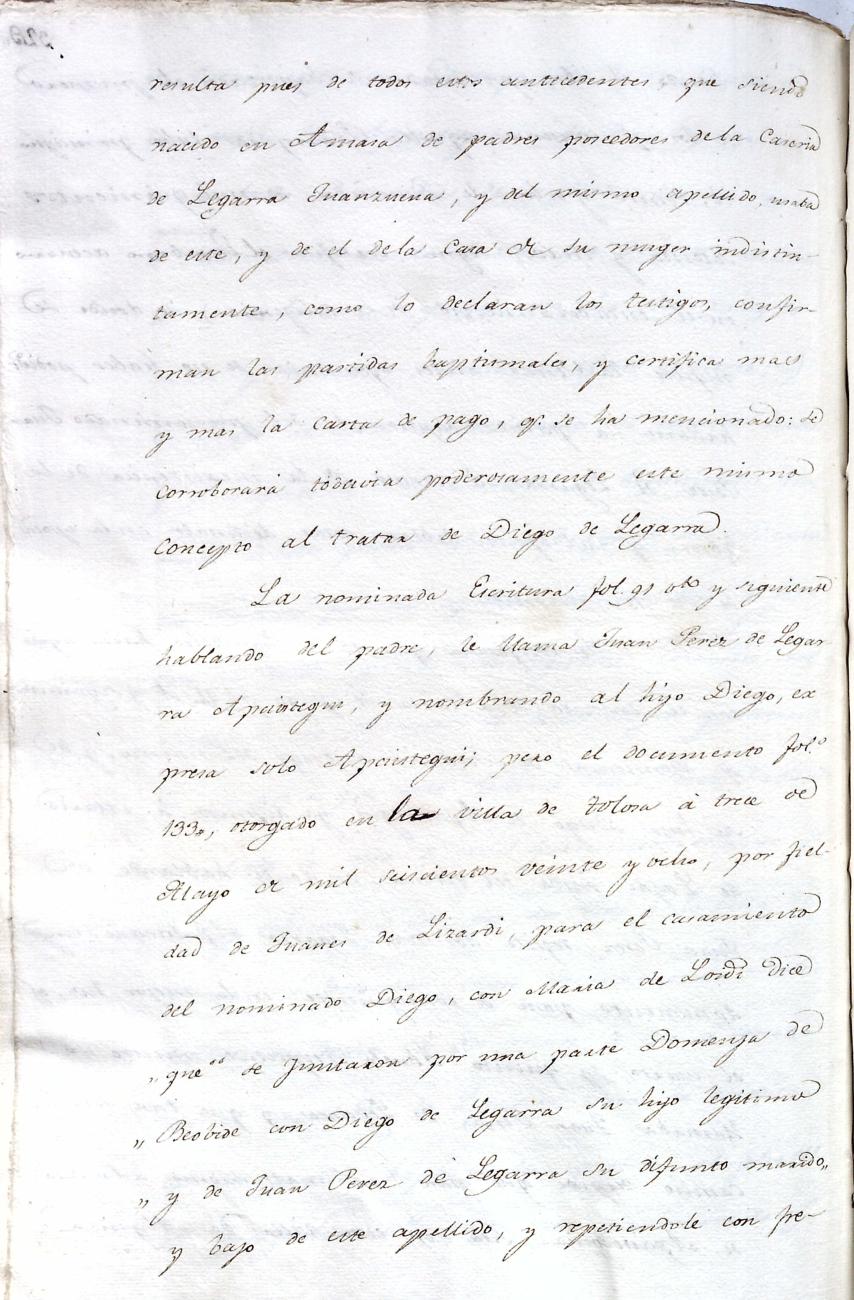 resulta pues de todos estos antecedentes que siendo
nacido en Amasa de padres poseedores de la Caseria
de Legarra Juanzuena, y del mismo apellido, usaba
de este, y de el de la Casa de su muger indistin-
tamente, como lo declaran los testigos, confir-
man las partidas baptismales, y certifica mas
y mas la carta de pago, qe. se ha mencionado: se
corroborará todavia poderosamente este mismo
concepto al tratar de Diego de Legarra.
La nominada Escritura fol. 91 vto y siguiente
hablando del padre, le llama Juan Perez de Legar
ra Apeiostegui, y nombrando al hijo Diego, ex
presa solo Apeiostegui; pero el documento fol.o
133,, otorgado en la villa de Tolosa á trece de
Mayo de mil seiscientos veinte y ocho, por fiel-
dad de Juanes de Lizardi, para el casamiento
del nominado Diego, con Maria de Loidi dice
,, que se juntaron por una parte Domenja de
,, Beobide con Diego de Legarra su hijo legitimo
,, y de Juan Perez de Legarra su difunto marido,,
y bajo de este apellido, y repetiendole con fre-